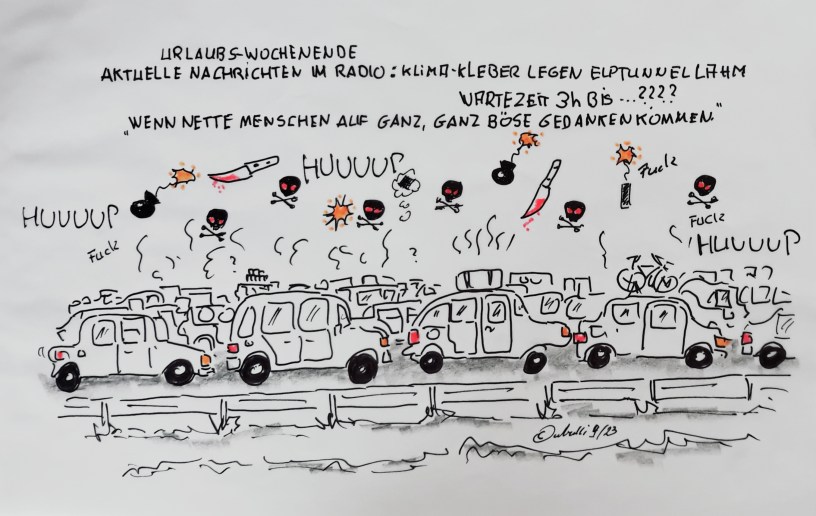 URLAUBS-WOCHENENDE
AKTUELLE NACHRICHTEN IM RADIO: KLIMA-KLEBER LEGEN ELPTUNNEL LAHM
WARTEZEIT 3h Bis ...????
„WENN NETTE MENSCHEN AUF GANZ, GANZ BÖSE GEDANKEN KOMMEN."
HUUUUP
Fuck
HUUUUP
Fuck
Fuck
HUUUUP
?
?
9/23